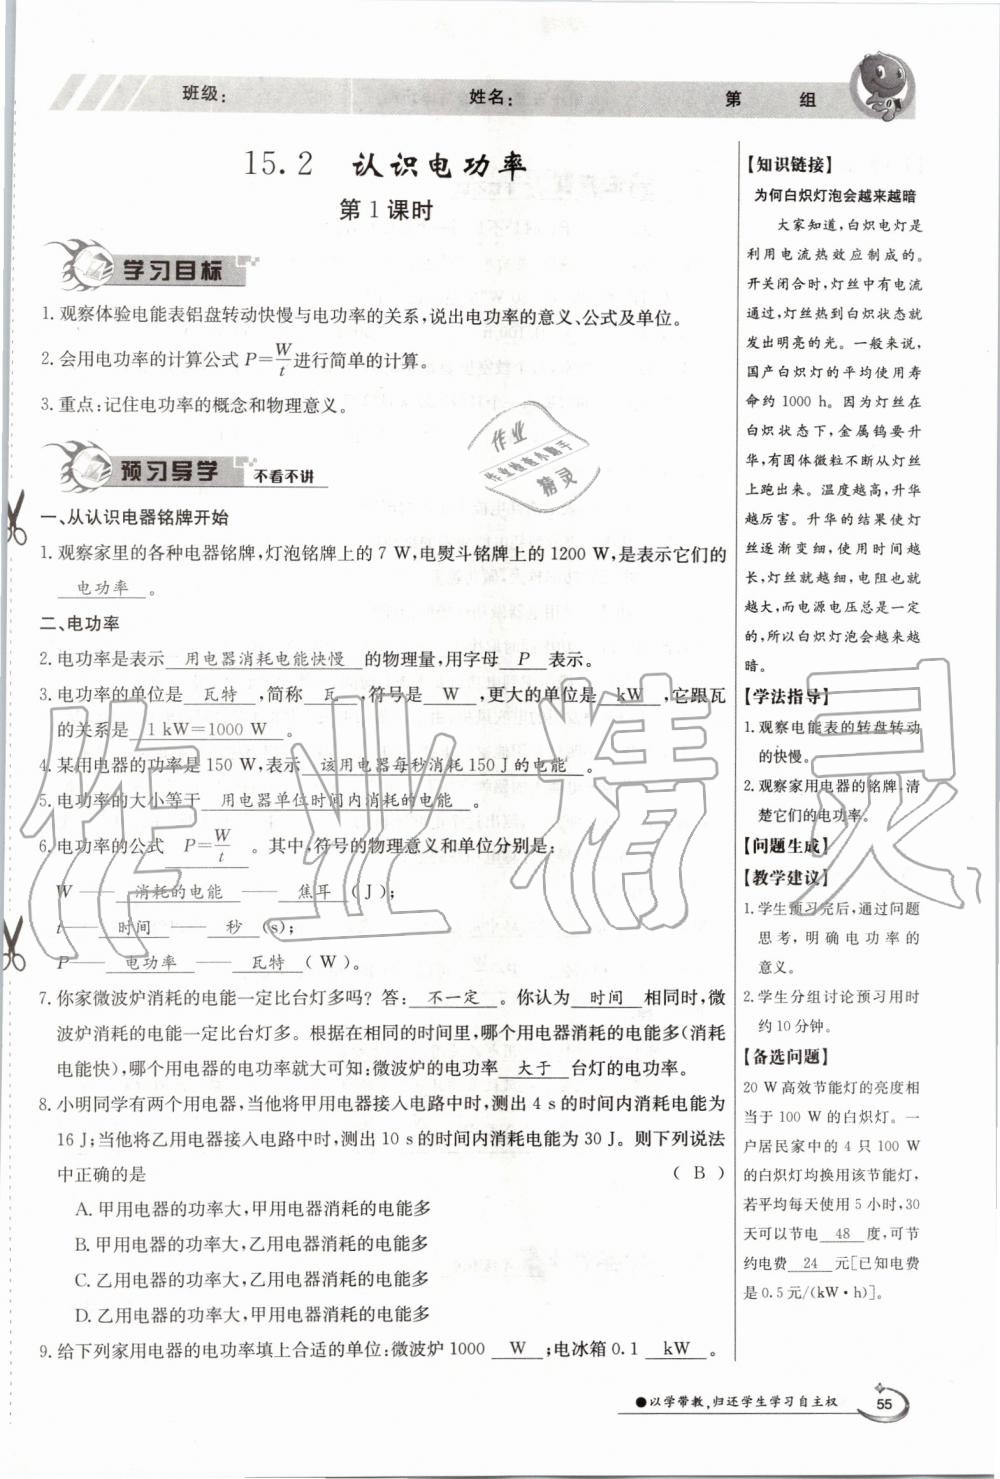 班级：
姓名：
第 组
15.2 认识电功率
第1课时
学习目标
1.观察体验电能表铝盘转动快慢与电功率的关系，说出电功率的意义、公式及单位。
2.会用电功率的计算公式 P=W/t进行简单的计算。
3.重点：记住电功率的概念和物理意义。
预习导学 不看不讲
一、从认识电器铭牌开始
1.观察家里的各种电器铭牌，灯泡铭牌上的 7 W，电熨斗铭牌上的 1200 W，是表示它们的
电功率 。
二、电功率
2.电功率是表示 用电器消耗电能快慢 的物理量，用字母 P 表示。
3.电功率的单位是 瓦特 ，简称 瓦 ，符号是 W ，更大的单位是 kW ，它跟瓦
的关系是 1 kW=1000 W 。
4.某用电器的功率是 150 W，表示 该用电器每秒消耗 150 J 的电能 。
5.电功率的大小等于 用电器单位时间内消耗的电能 。
6.电功率的公式 P=W/t 。其中，符号的物理意义和单位分别是：
W —— 消耗的电能 —— 焦耳 （J）；
t—— 时间 —— 秒 （s）；
P—— 电功率 —— 瓦特 （W）。
7.你家微波炉消耗的电能一定比台灯多吗？答： 不一定 。你认为 时间 相同时，微
波炉消耗的电能一定比台灯多。根据在相同的时间里，哪个用电器消耗的电能多（消耗
电能快），哪个用电器的电功率就大可知：微波炉的电功率 大于 台灯的电功率。
8.小明同学有两个用电器，当他将甲用电器接入电路中时，测出 4 s 的时间内消耗电能为
16 J；当他将乙用电器接入电路中时，测出 10 s 的时间内消耗电能为 30 J。则下列说法
中正确的是 （ B ）
A.甲用电器的功率大，甲用电器消耗的电能多
B.甲用电器的功率大，乙用电器消耗的电能多
C.乙用电器的功率大，乙用电器消耗的电能多
D.乙用电器的功率大，甲用电器消耗的电能多
9.给下列家用电器的电功率填上合适的单位：微波炉 1000 W ；电冰箱 0.1 kW 。
【知识链接】
为何白炽灯泡会越来越暗
大家知道，白炽电灯是
利用电流热效应制成的。
开关闭合时，灯丝中有电流
通过，灯丝到白炽状态就
发出明亮的光。一般来说，
国产白炽灯的平均使用寿
命约 1000 h。因为灯丝在
白炽状态下，金属钨要升
华，有固体微粒不断从灯丝
上跑出来。温度越高，升华
越厉害。升华的结果使灯
丝逐渐变细，使用时间越
长，灯丝就越细，电阻也就
越大，而电源电压总是一定
的，所以白炽灯泡会越来越
暗。
【学法指导】
1.观察电能表的转盘转动
的快慢。
2.观察家用电器的铭牌，清
楚它们的电功率。
【问题生成】
【教学建议】
1.学生预习完后，通过问题
思考，明确电功率的
意义。
2.学生分组讨论预习用时
约 10 分钟。
【备选问题】
20 W 高效节能灯的亮度相
当于 100 W 的白炽灯。一
户居民家中的 4 只 100 W
的白炽灯均换用该节能灯，
若平均每天使用 5 小时，30
天可以节电 48 度，可节
约电费 24 元[已知电费
是 0.5 元/(kW·h)]。
●以学带教，归还学生学习自主权
55
作业
作业检查小助手
精灵
作业精灵